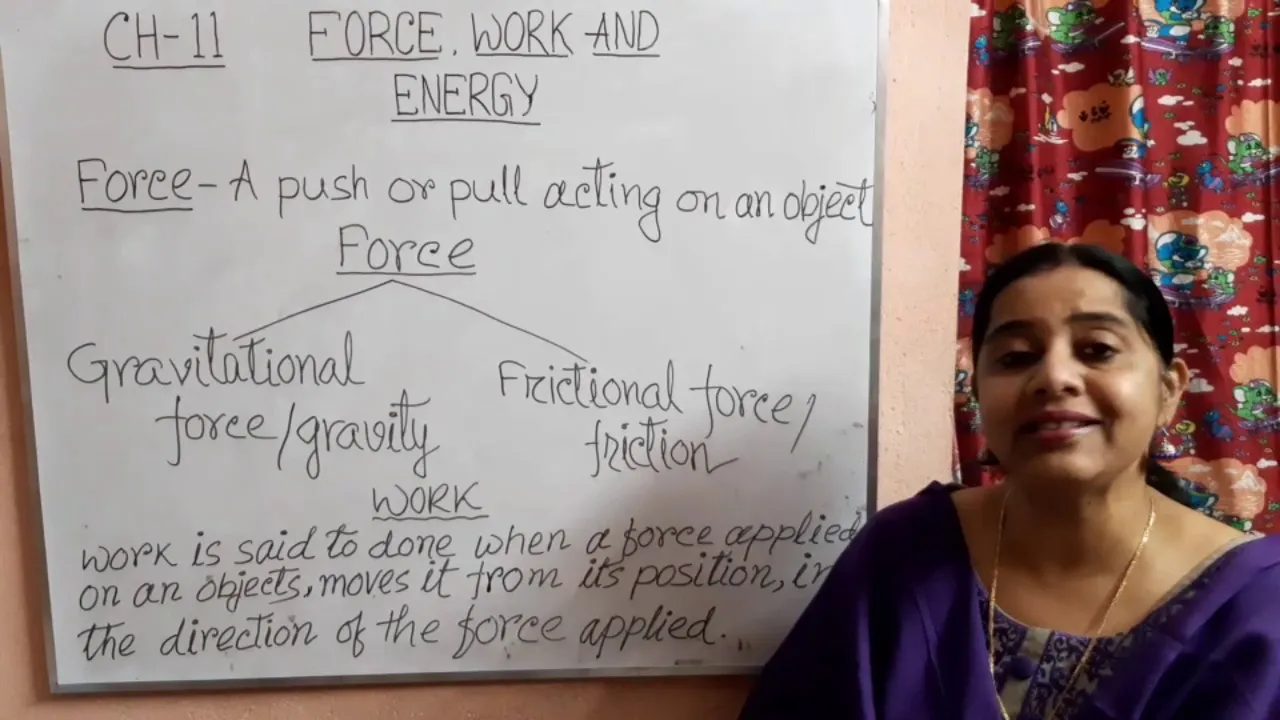 CH-11 FORCE, WORK AND
ENERGY
Force - A push or pull acting on an object
Force
Gravitational
force/gravity
Frictional force/
friction
WORK
work is said to done when a force applied
on an objects, moves it from its position, in
the direction of the force applied.